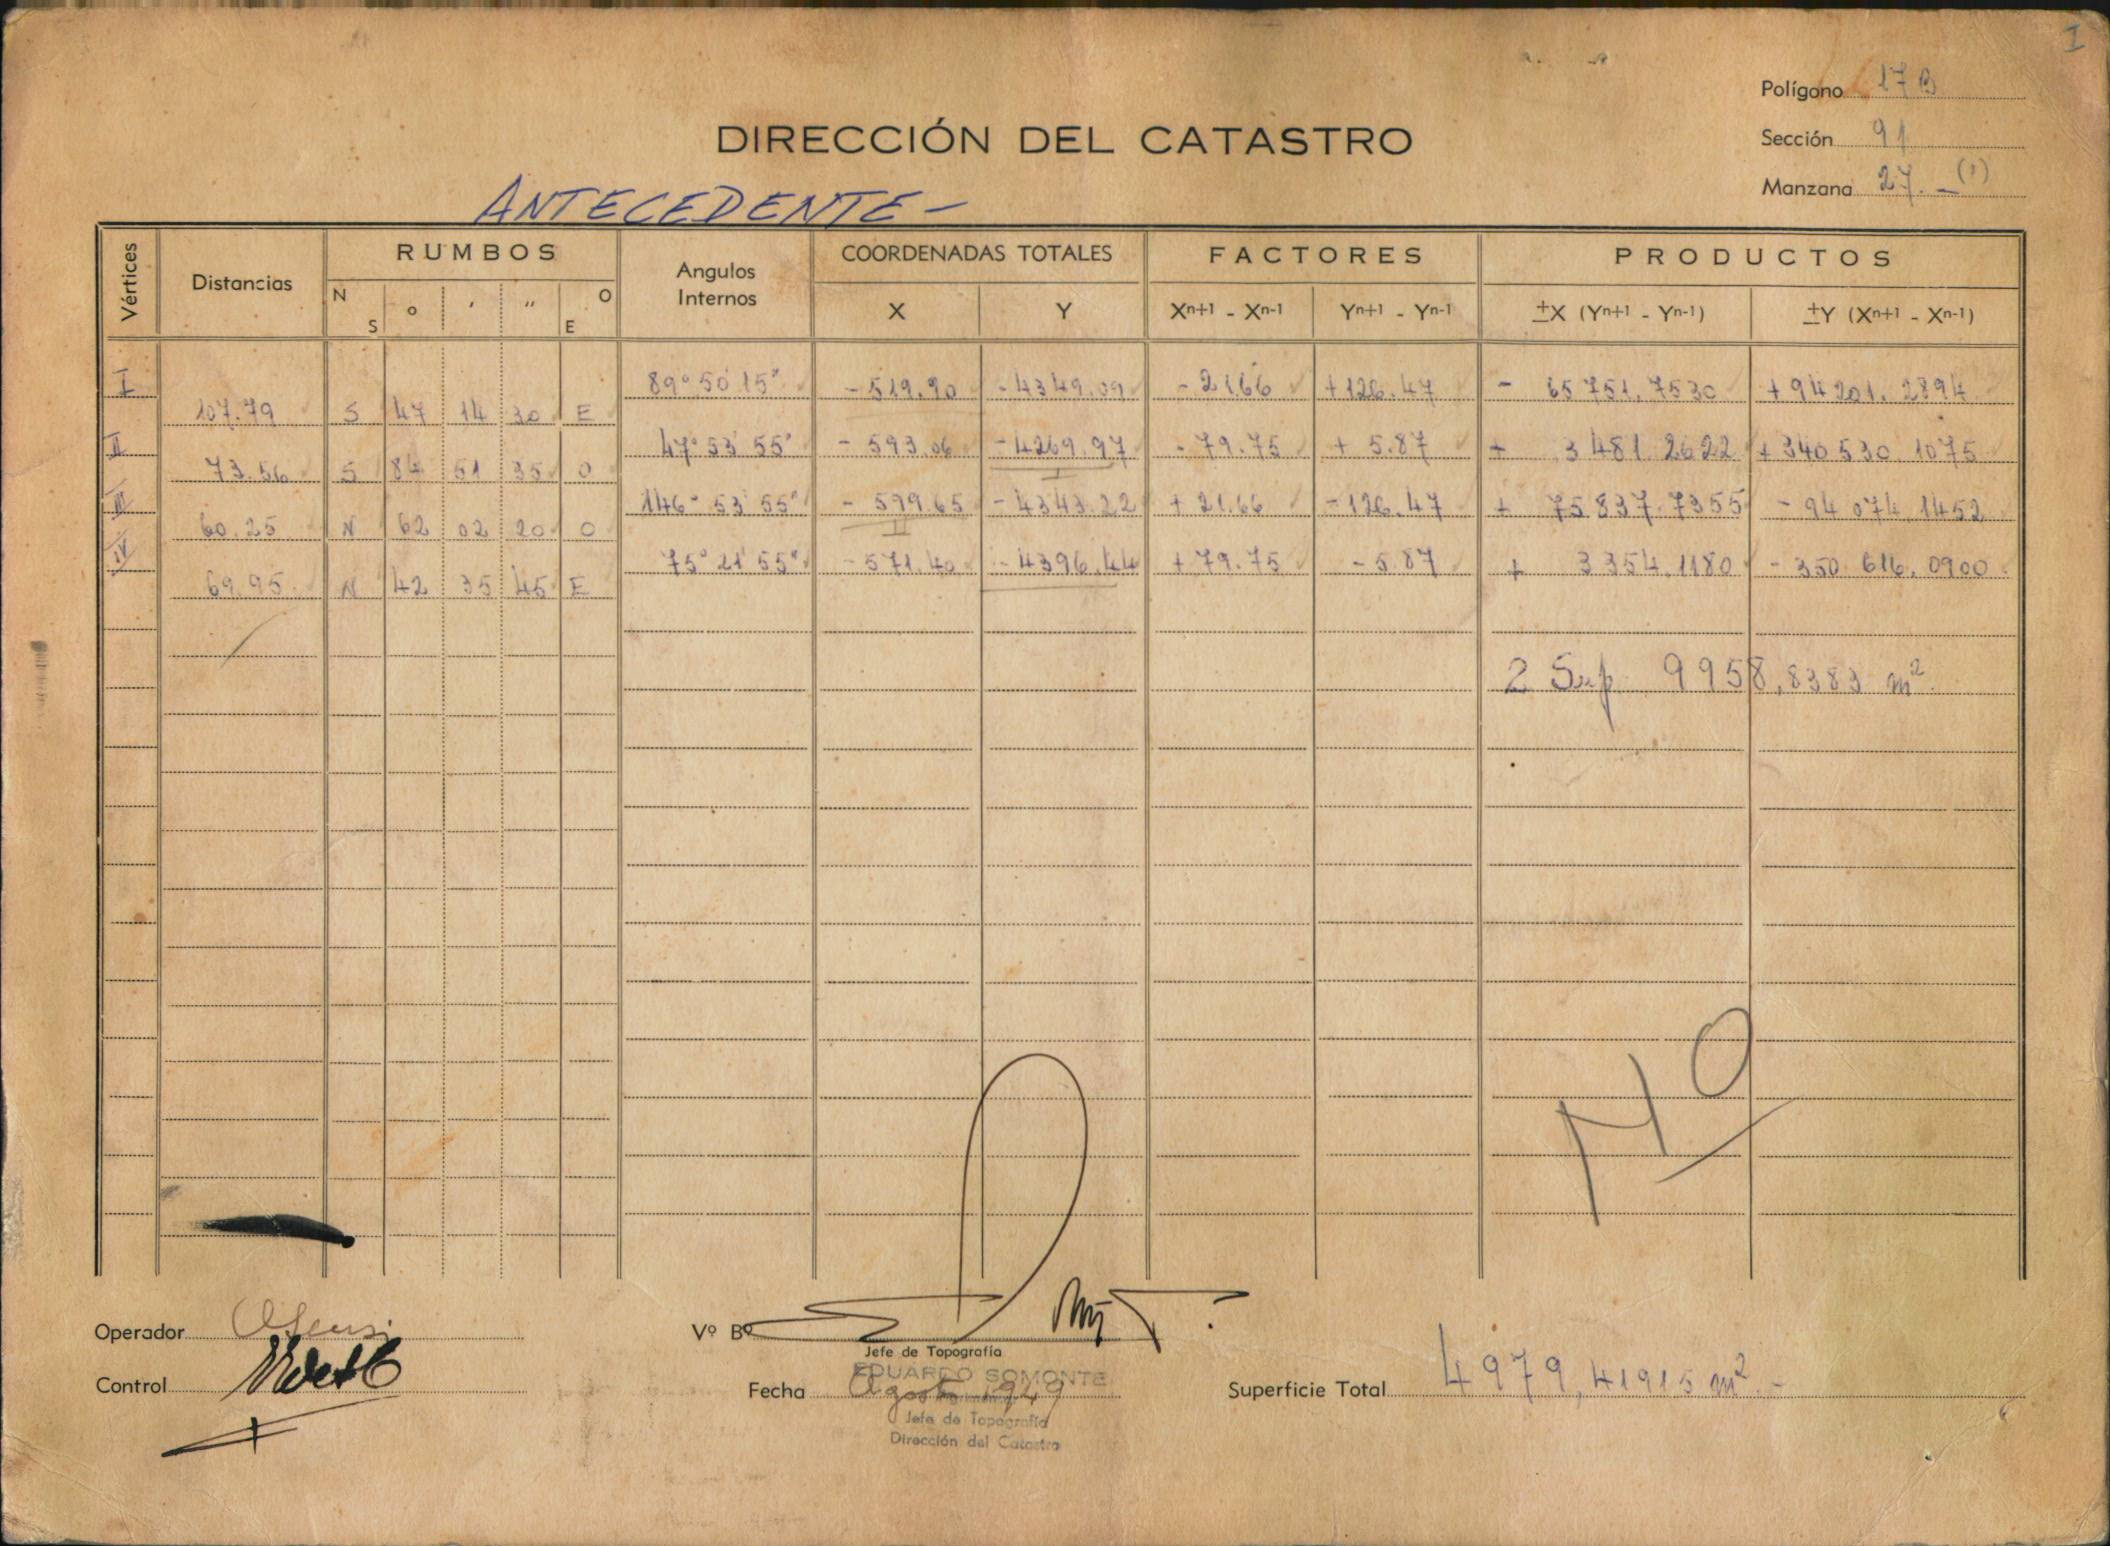 I
Polígono 17 B
DIRECCIÓN DEL CATASTRO
Sección 91
Manzana 27. - (1)
ANTECEDENTE -
Vértices Distancias RUMBOS Angulos Internos COORDENADAS TOTALES FACTORES PRODUCTOS
N S o ' " O E X Y Xn+1 - Xn-1 Yn+1 - Yn-1 ±X (Yn+1 - Yn-1) ±Y (Xn+1 - Xn-1)
I 89° 50' 15" - 519.90 - 4349.09 - 21.66 + 126.47 - 65 751,7530 + 94 201.2894
107.79 S 47 14 30 E
II 47° 53' 55" - 593.06 - 4269.97 - 79.75 + 5.87 + 3 481.2622 + 340 530.1075
I
73.56 S 84 51 35 O
III 146° 53' 55" - 599.65 - 4343.22 + 21.66 - 126.47 + 75 837.7355 - 94 074.1452
II
60.25 N 62 02 20 O
IV 75° 21' 55" - 571.40 - 4396.44 + 79.75 - 5.87 + 3 354.1180 - 350 616.0900
69.95 N 42 35 45 E
2 Sup 9958,8383 m²
NO
Operador
Vº Bº
Jefe de Topografía
Control
EDUARDO SOMONTE
Fecha Agosto 1949
Superficie Total 4979,41915 m². -
Jefe de Topografía
Dirección del Catastro